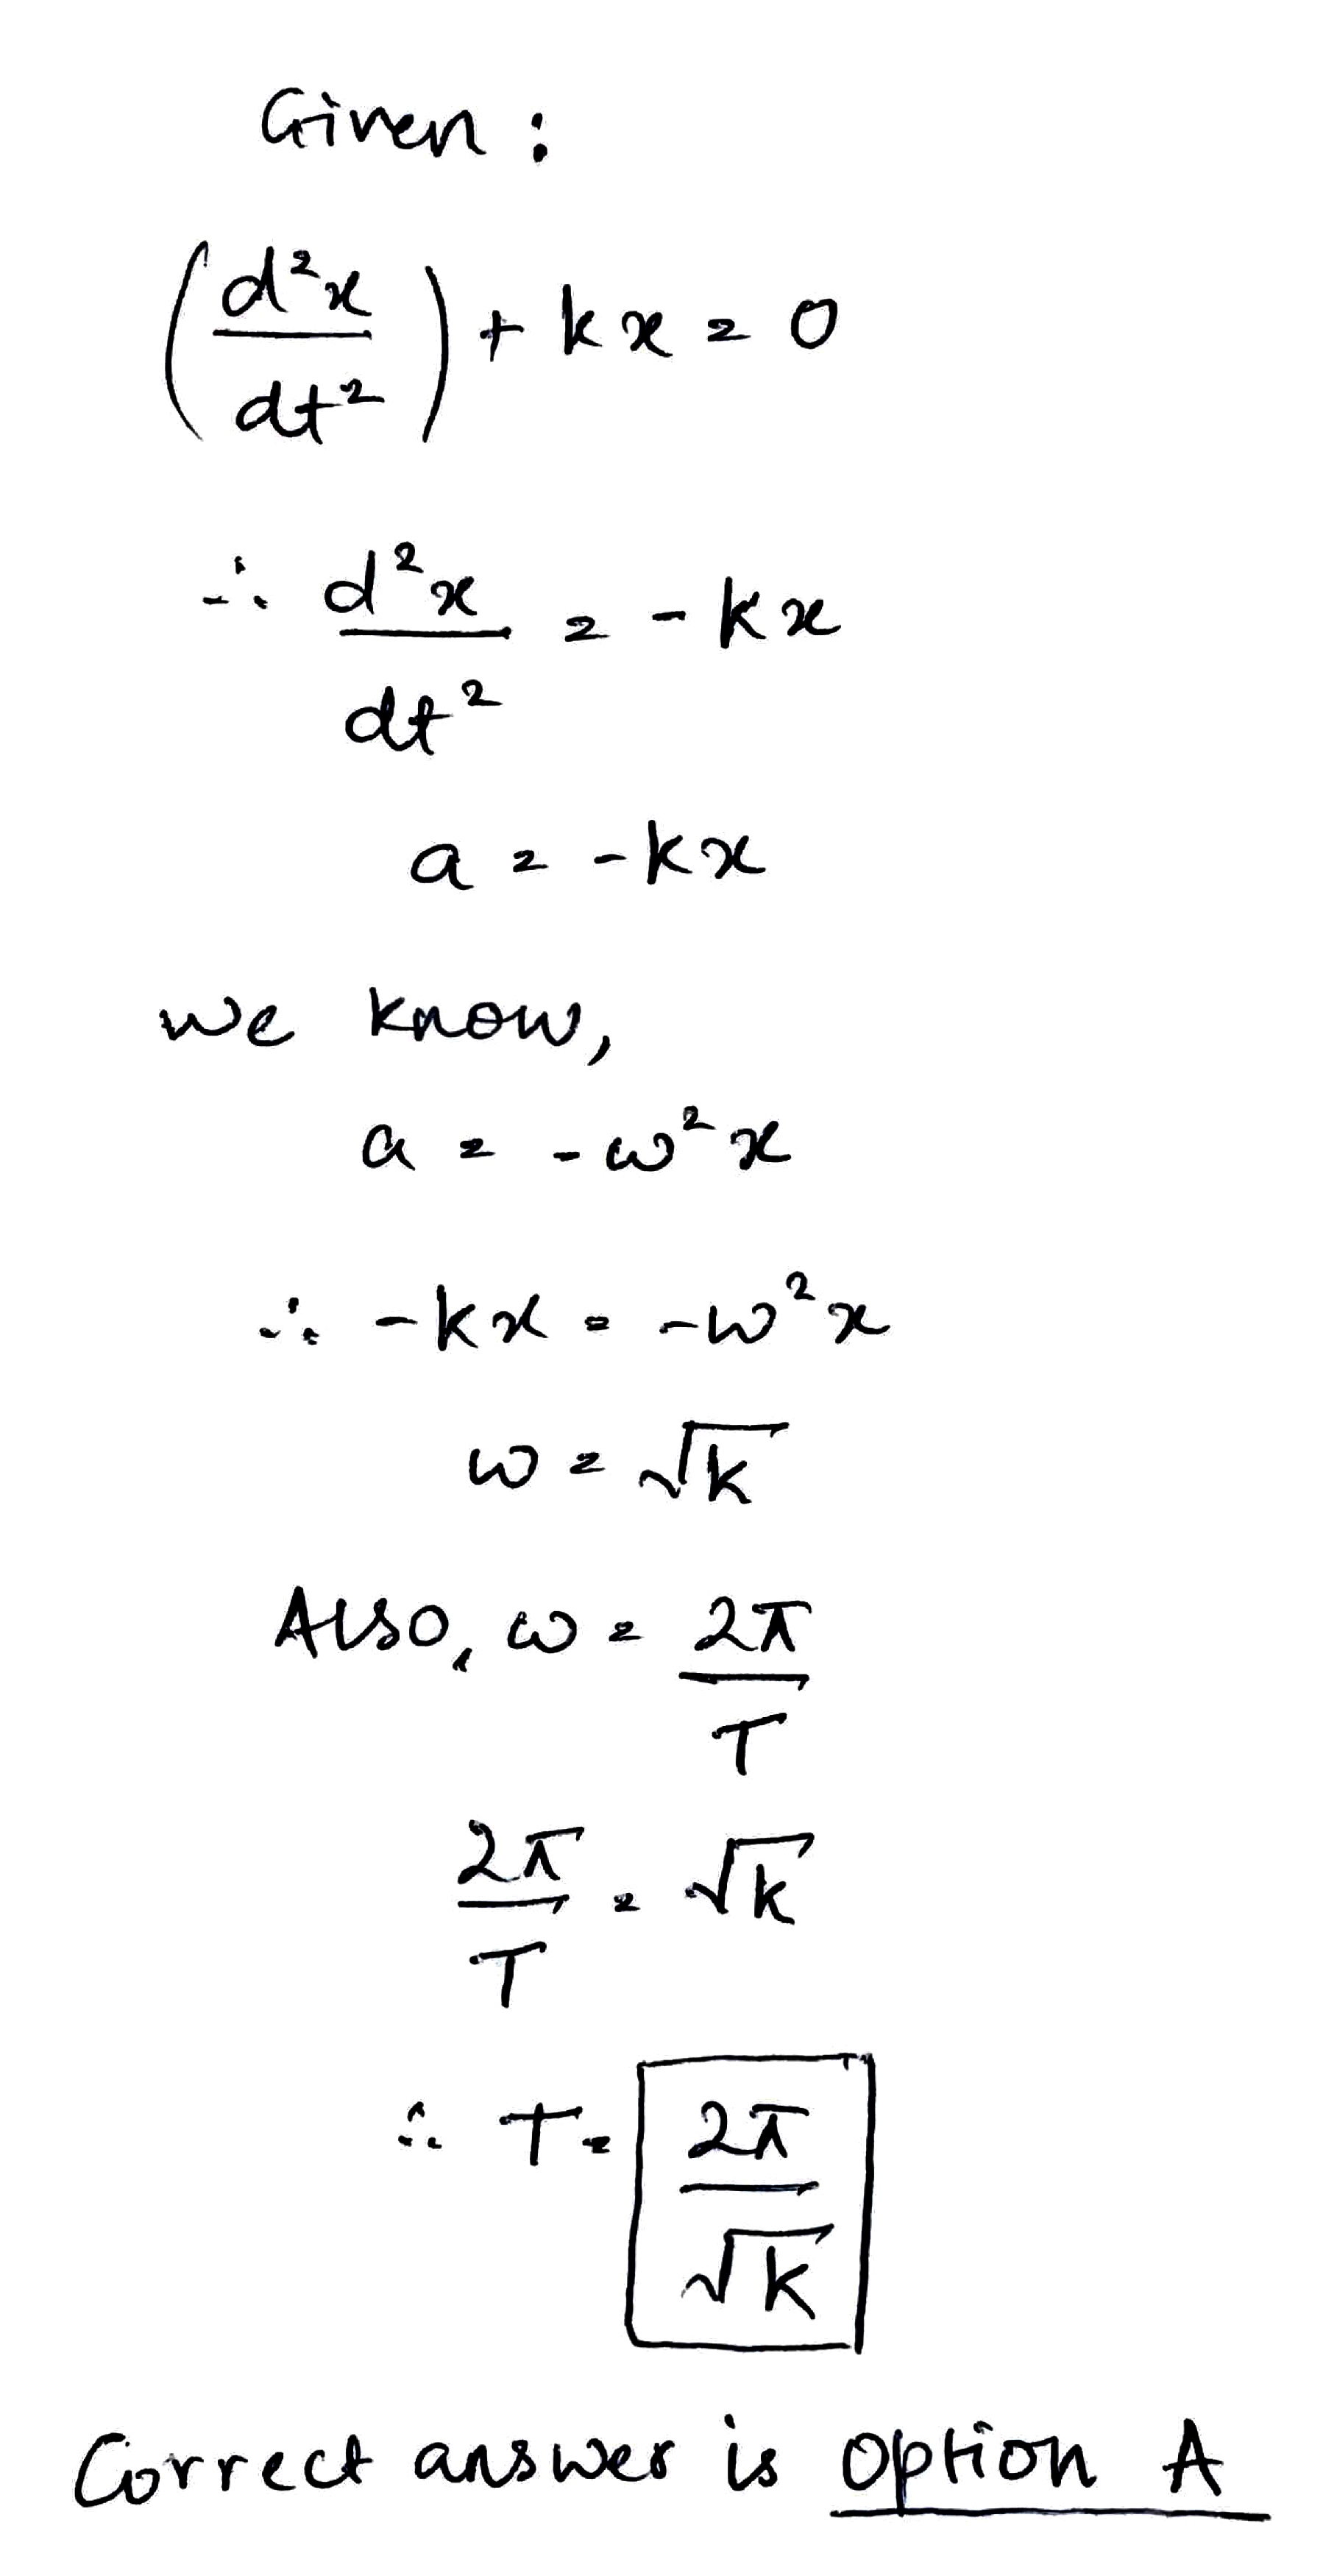 Given :
(d²x/dt²) + kx = 0
∴ d²x/dt² = -kx
a = -kx
we know,
a = -ω²x
∴ -kx = -ω²x
ω = √k
Also, ω = 2π/T
2π/T = √k
∴ T = 2π/√k
Correct answer is option A